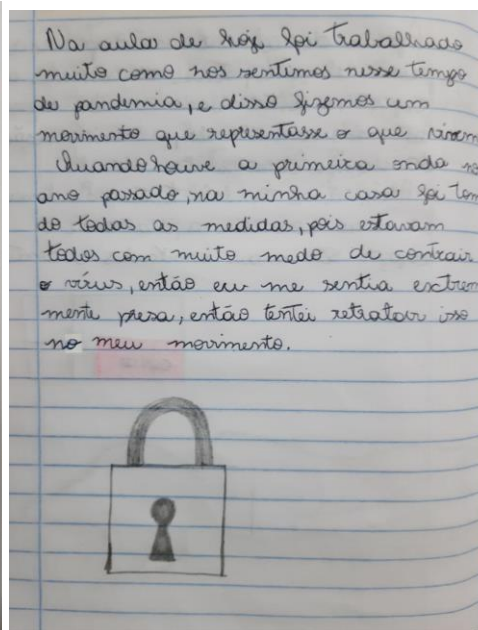 Na aula de hoje foi trabalhado
muito como nos sentimos nesse tempo
de pandemia, e disso fizemos um
movimento que representasse o que vivem
Quando houve a primeira onda no
ano passado, na minha casa foi tom
do todas as medidas, pois estavam
todos com muito medo de contrair
o vírus, então eu me sentia extrem
mente presa, então tentei retratar isso
no meu movimento.